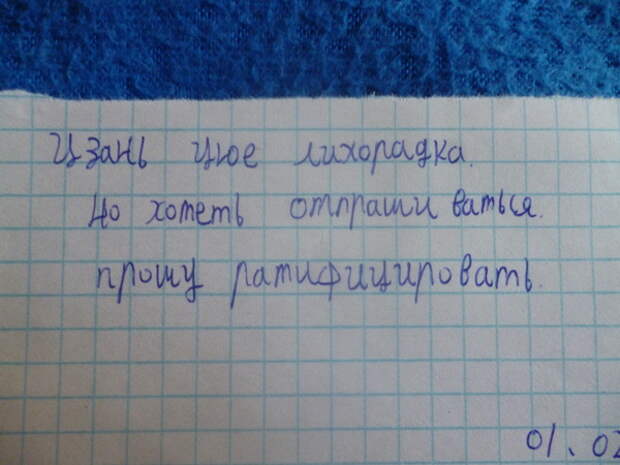 Цзань цюе лихорадка.
Но хотеть отпраши ваться.
прошу ратифицировать.
01.02